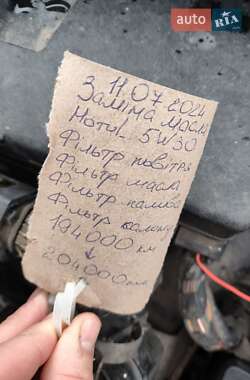 auto RIA
11.07.2024
Заміна масла
Motul 5W30
Фільтр повітря
Фільтр масла
Фільтр палива
Фільтр салону
194000 км
↓
204000 км